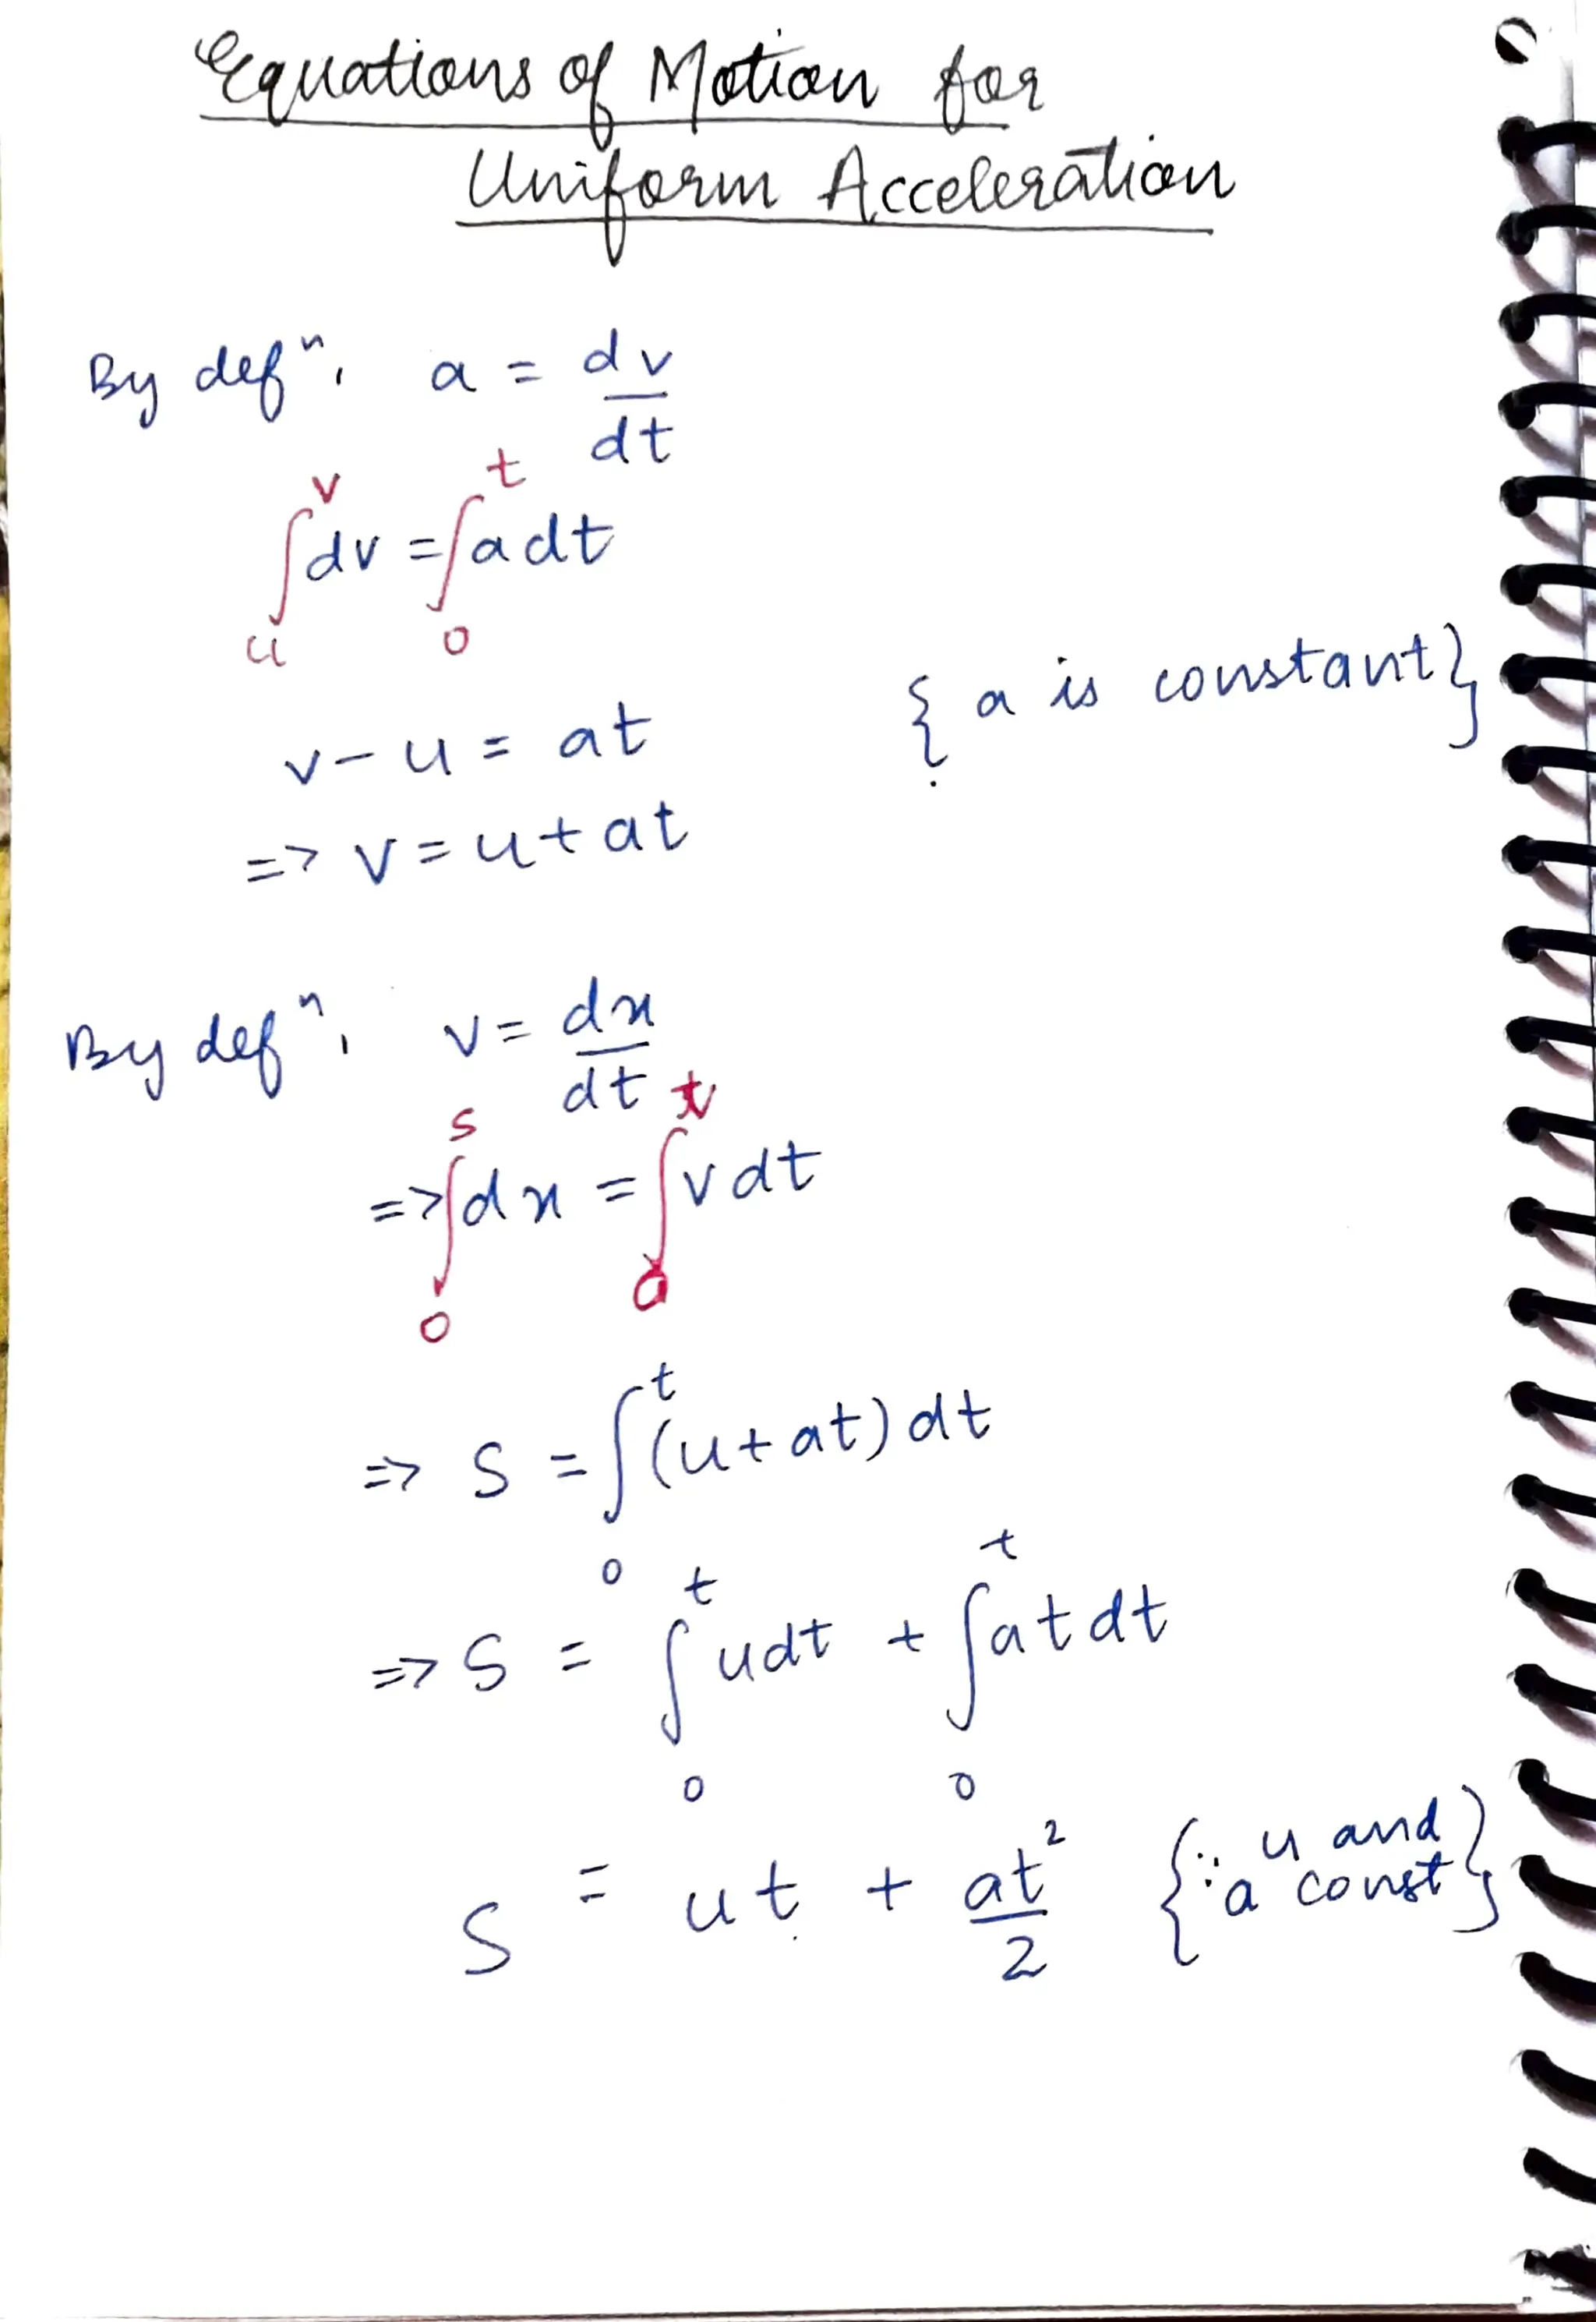 Equations of Motion for
Uniform Acceleration
By defⁿ, a = dv/dt
∫ᵤᵛ dv = ∫₀ᵗ a dt
v - u = at { a is constant }
=> v = u + at
By defⁿ, v = dx/dt
=> ∫₀ˢ dx = ∫₀ᵗ v dt
=> S = ∫₀ᵗ (u + at) dt
=> S = ∫₀ᵗ u dt + ∫₀ᵗ at dt
S = ut + at²/2 { ∵ u and a const }